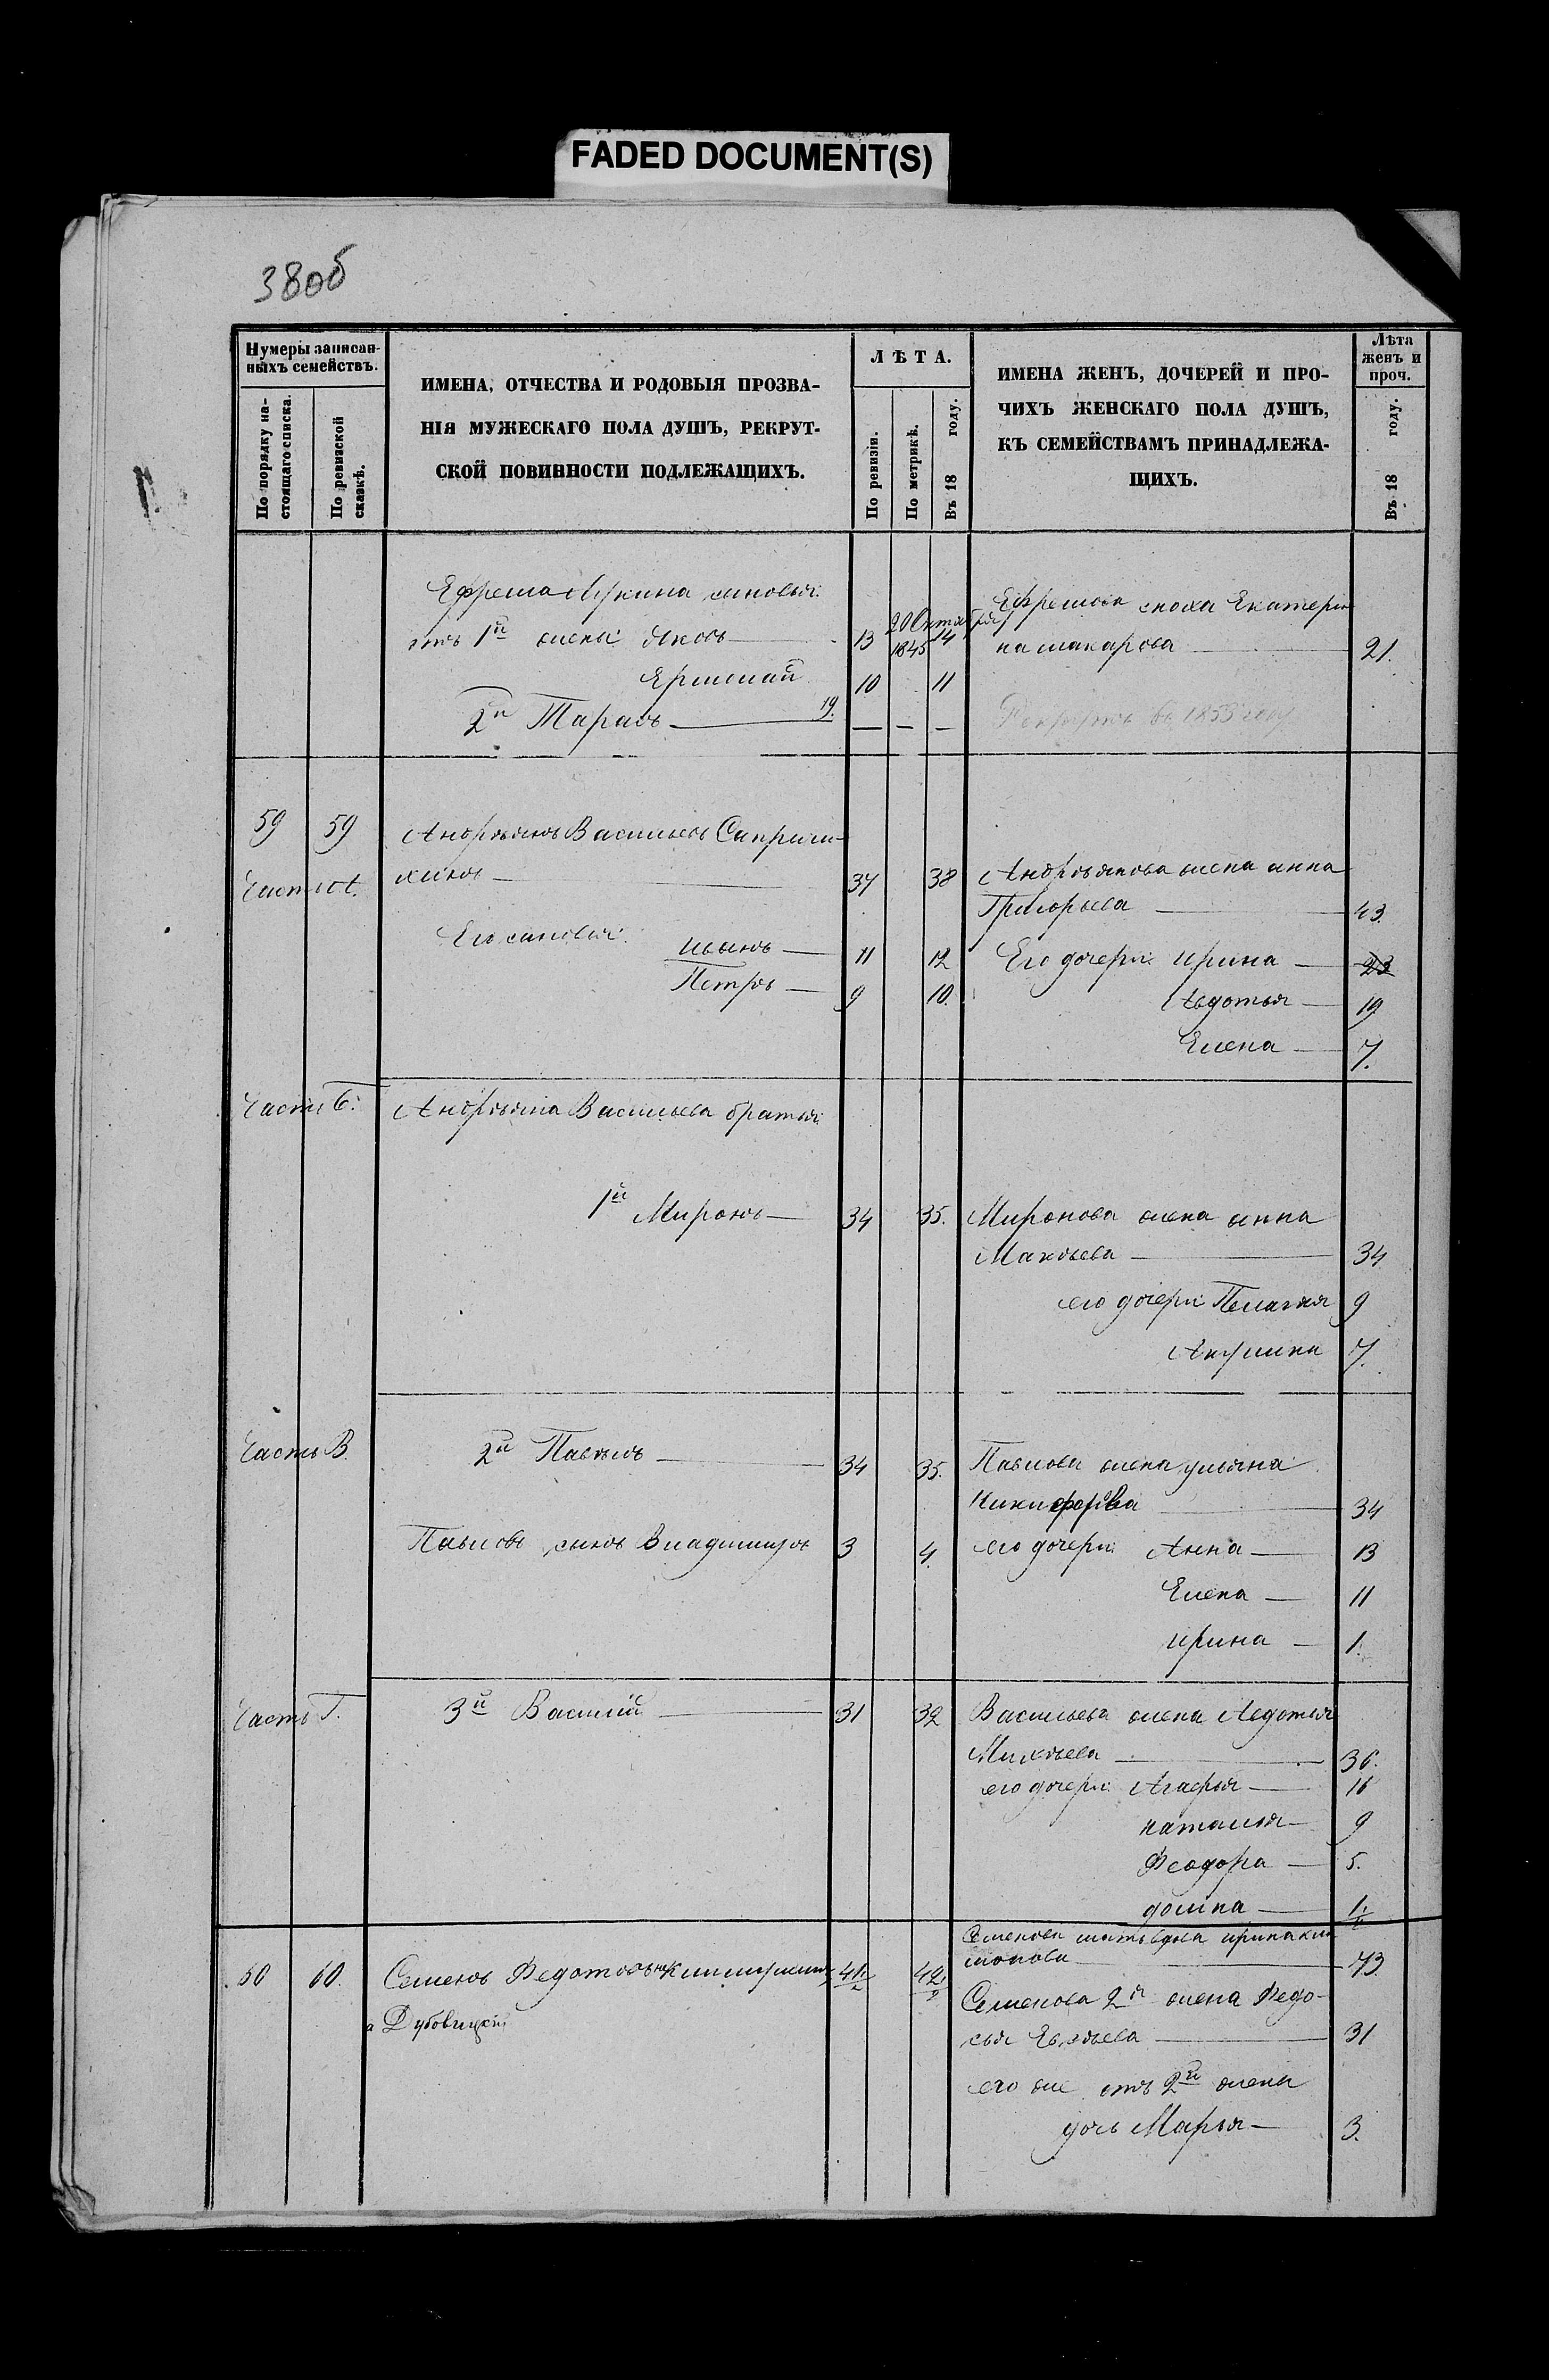 FADED DOCUMENT(S)
38об
Нумеры записан-
ныхъ семействъ.
По порядку на-
стоящаго списка.
По ревизской
сказкѣ.
ИМЕНА, ОТЧЕСТВА И РОДОВЫЯ ПРОЗВА-
НІЯ МУЖЕСКАГО ПОЛА ДУШЪ, РЕКРУТ-
СКОЙ ПОВИННОСТИ ПОДЛЕЖАЩИХЪ.
ЛѢТА.
По ревизіи.
По метрикѣ.
Въ 18 году.
ИМЕНА ЖЕНЪ, ДОЧЕРЕЙ И ПРО-
ЧИХЪ ЖЕНСКАГО ПОЛА ДУШЪ,
КЪ СЕМЕЙСТВАМЪ ПРИНАДЛЕЖА-
ЩИХЪ.
Лѣта
женъ и
проч.
Въ 18 году.
Ефрема Лукина сыновья:
отъ 1й жены: Яковъ — 13 20 Октября 1845 14
Ефремова сноха Екатери-
на Макарова — 21.
Ермолай 10 11
2й Тарасъ — 19. — — —
Рекрутъ въ 1853 году
59 59 Андреянъ Васильевъ Сапрыги-
Часть А. хинъ — 37 38
Андреянова жена Анна
Григорьева — 43.
Его сыновья: Иванъ — 11 12
Его дочери: Ирина — 23
Петръ — 9 10.
Авдотья — 19
Елена — 7.
Часть Б. Андреяна Васильева братья:
1й Миронъ — 34 35. Миронова жена Анна
Макѣева — 34
его дочери: Пелагея 9
Акулина 7.
Часть В. 2й Павелъ — 34 35. Павлова жена Ульяна
Никифорова — 34
Павловъ сынъ Владимиръ 3 4. его дочери: Анна — 13
Елена — 11
Ирина — 1.
Часть Г. 3й Василій — 31 32 Васильева жена Авдотья
Михѣева — 36.
его дочери: Агафья — 16
Наталья — 9
Феодора — 5.
Домна — 1.
Семенова мать вдова Ирина
73.
60 60. Семенъ Федотовъ 41 42
а Дубовицкій
Семенова 2я жена Федо-
сья Евсѣева — 31
его же отъ 2й жены
дочь Марья — 3.